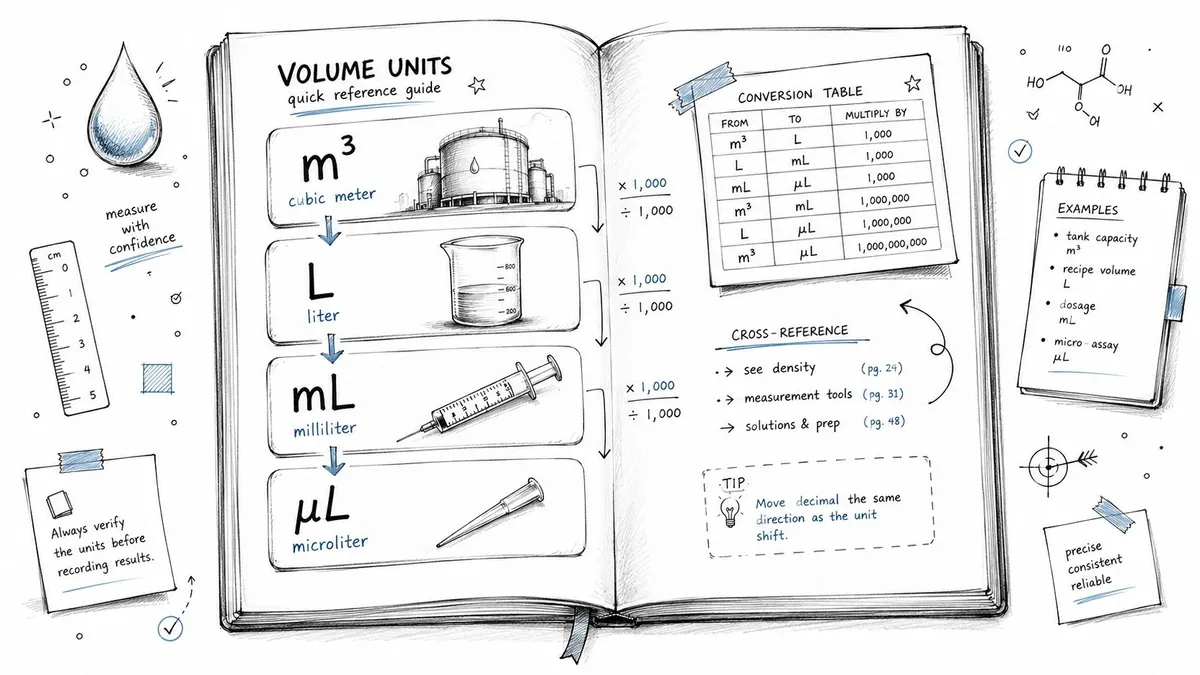 VOLUME UNITS
quick reference guide
m³
cubic meter
L
liter
800
600
200
mL
milliliter
µL
microliter
× 1,000
÷ 1,000
× 1,000
÷ 1,000
× 1,000
÷ 1,000
CONVERSION TABLE
FROM TO MULTIPLY BY
m³ L 1,000
L mL 1,000
mL µL 1,000
m³ mL 1,000,000
L µL 1,000,000
m³ µL 1,000,000,000
CROSS-REFERENCE
see density (pg. 24)
measurement tools (pg. 31)
solutions & prep (pg. 48)
TIP
Move decimal the same
direction as the unit
shift.
measure
with
confidence
cm
0
1
2
3
4
5
Always verify
the units before
recording results.
HO
O
OH
O
OH
EXAMPLES
• tank capacity
m³
• recipe volume
L
• dosage
mL
• micro-assay
µL
precise
consistent
reliable